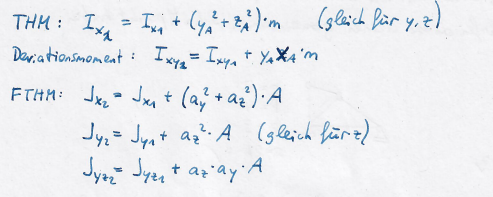 THM: I_{x_2} = I_{x_1} + (y_A² + z_A²)·m (gleich für y, z)
Deviationsmoment: I_{xy_2} = I_{xy_1} + y_A x_A·m
FTHM: J_{x_2} = J_{x_1} + (a_y² + a_z²)·A
J_{y_2} = J_{y_1} + a_z²·A (gleich für z)
J_{yz_2} = J_{yz_1} + a_z·a_y·A